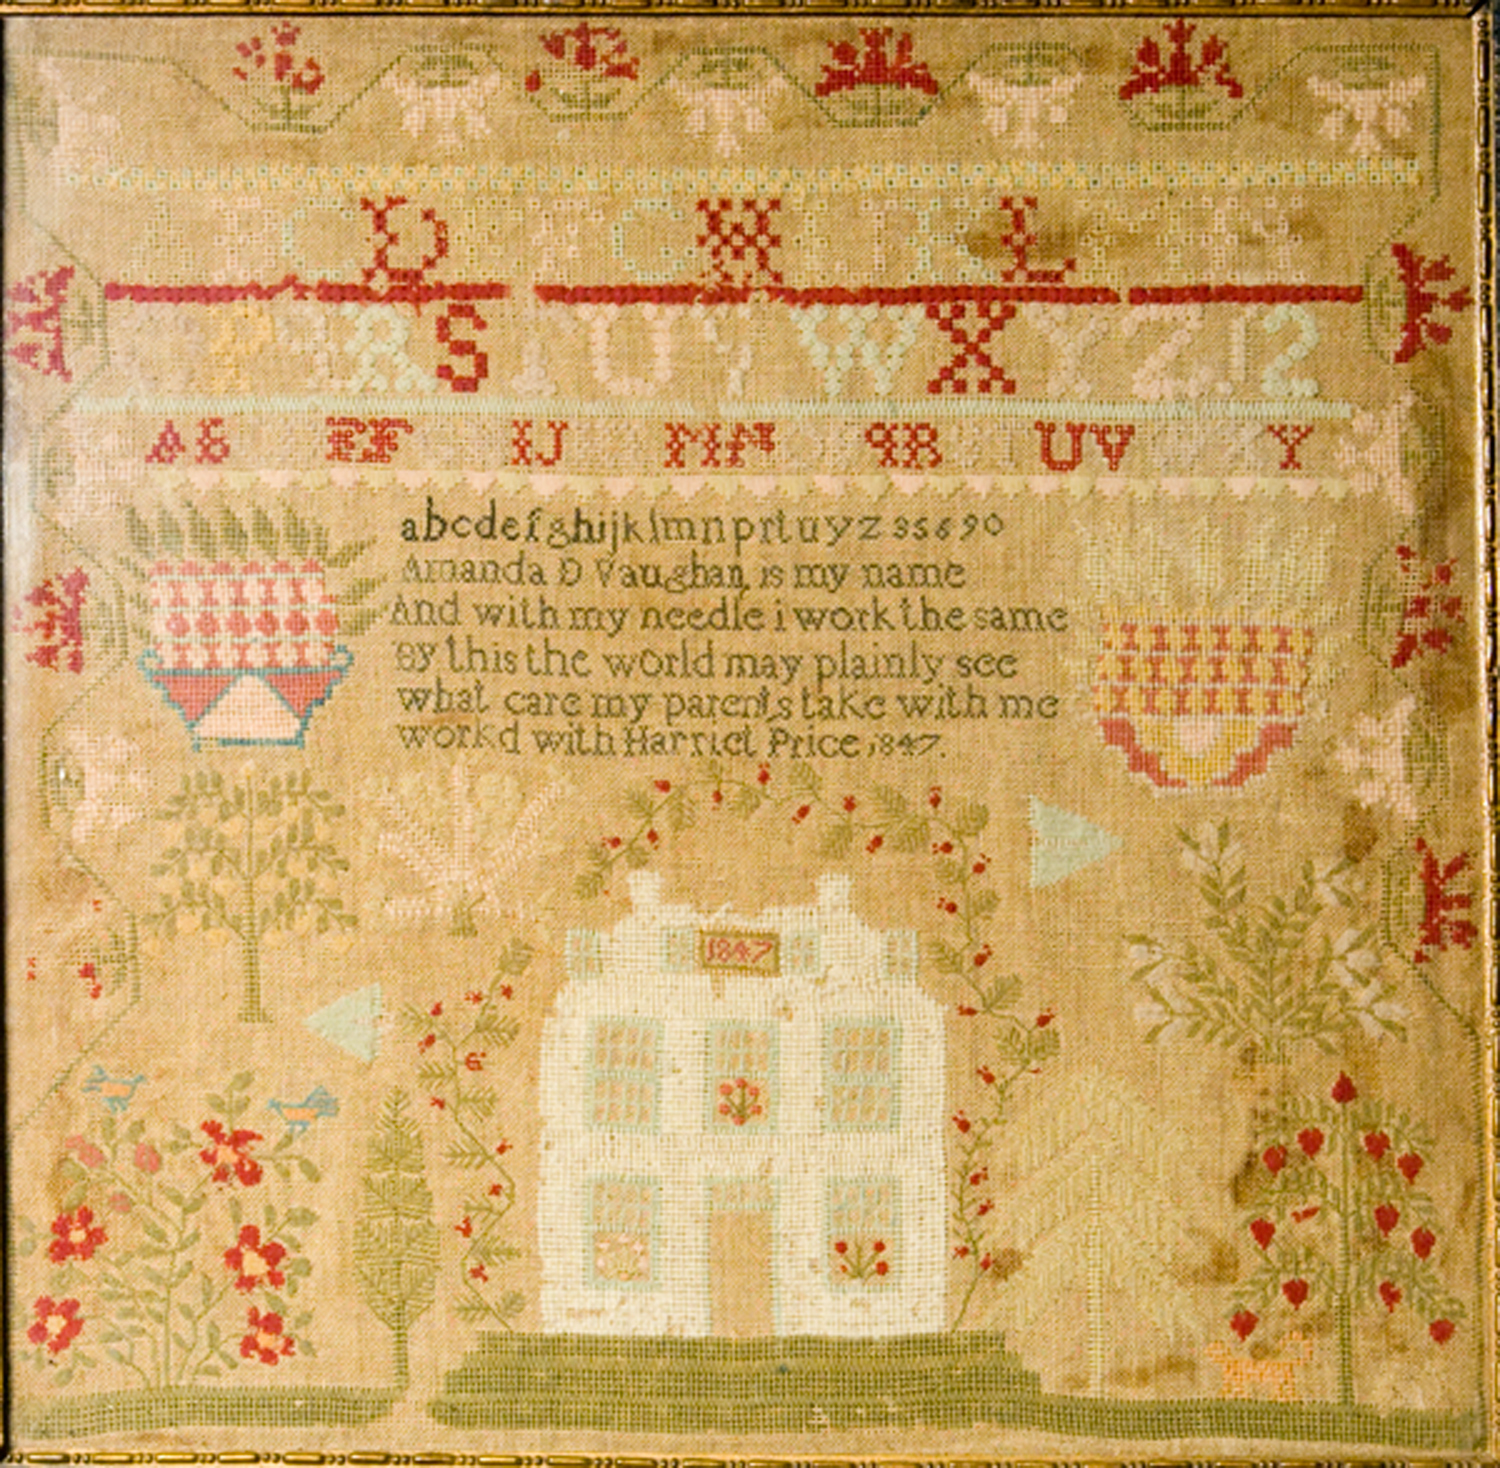 A B C D E F G H I K L M N
P Q R S T U V W X Y Z 1 2
A B E F I J M N Q R U V Y
abcdefghijklmnprtuyz 35690
Amanda D Vaughan is my name
And with my needle i work the same
By this the world may plainly see
what care my parents take with me
workd with Harriet Price 1847.
1847